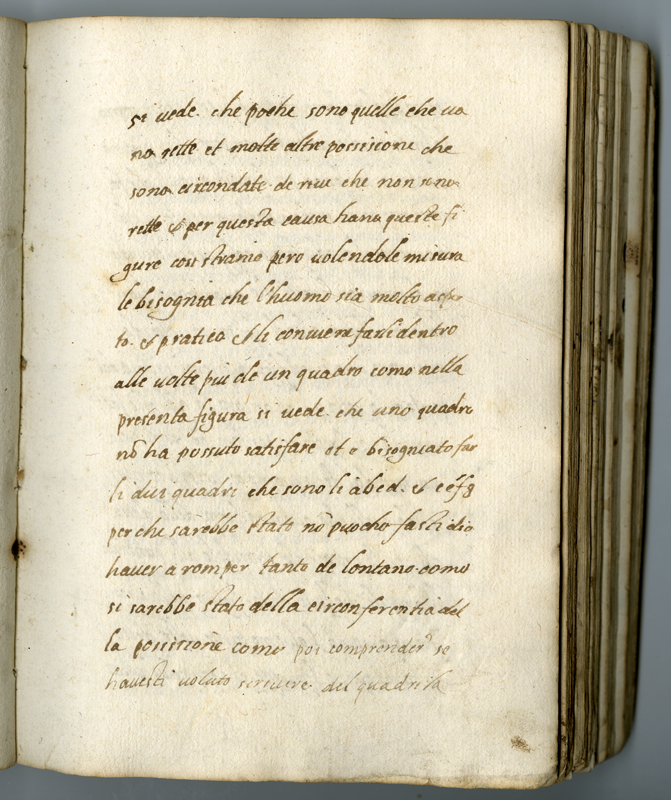 si vede. che poche sono quelle che va
no rette et molte altre possisione che
sono circondate de rive che non sono
rette & per questa causa hano queste fi
gure cosi stranio pero volendole misura
le bisognia che l'huomo sia molto acor
to. & pratico & li conviene farli dentro
alle volte piu de un quadro como nella
presenta figura si vede. che uno quadro
nō ha possuto satisfare et e bisogniato far
li dui quadri che sono li abcd. & e efg
perche sarebbe stato nō puocho fastidio
haver a romper tanto de lontano como
si sarebbe stato della circonferentia del
la possisione como poi comprender se
havesti voluto scrivere del quadrila